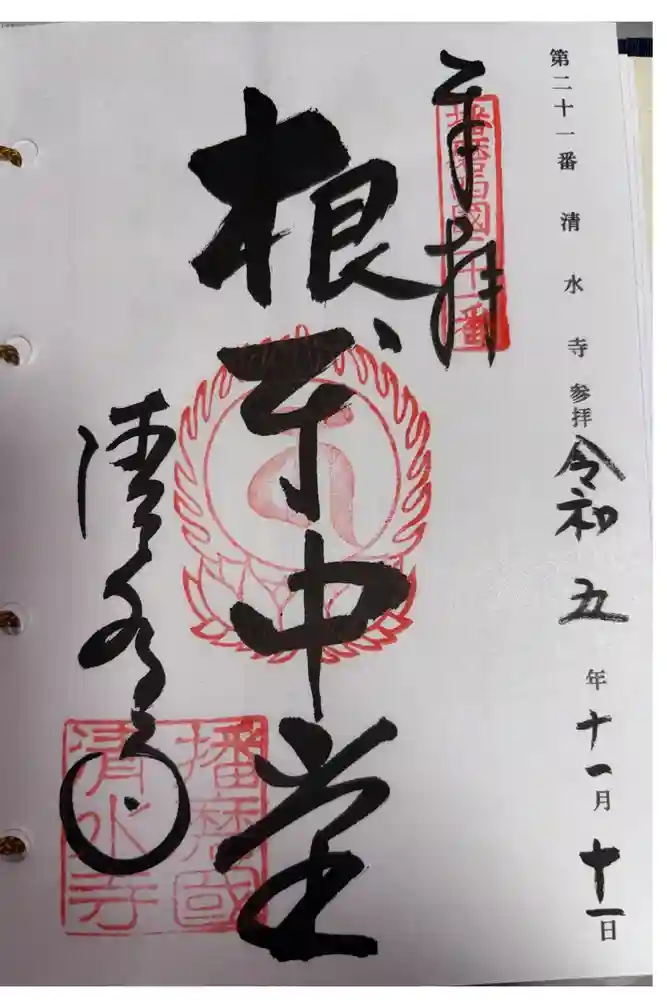 第二十一番 清水寺 参拝 令和 五 年 十一月 十一日
奉拝
播磨西國二十一番
根本中堂
清水寺
播磨國
清水寺